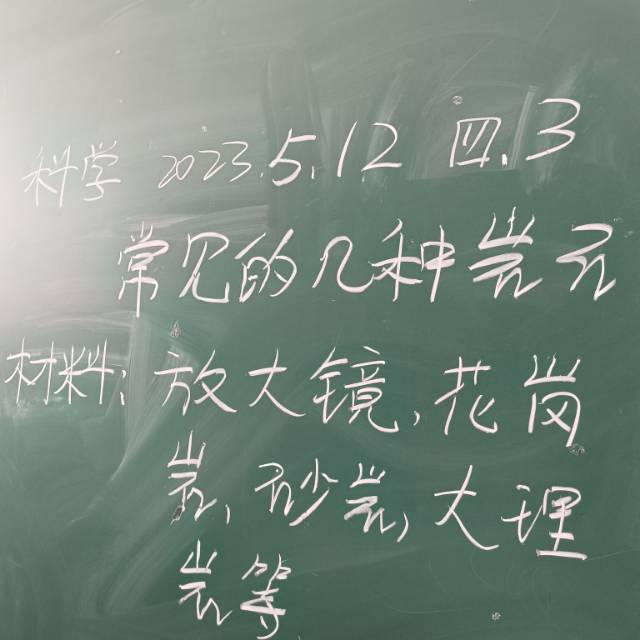 科学 2023.5.12 四.3
常见的几种岩石
材料:放大镜,花岗
岩,砂岩,大理
岩等